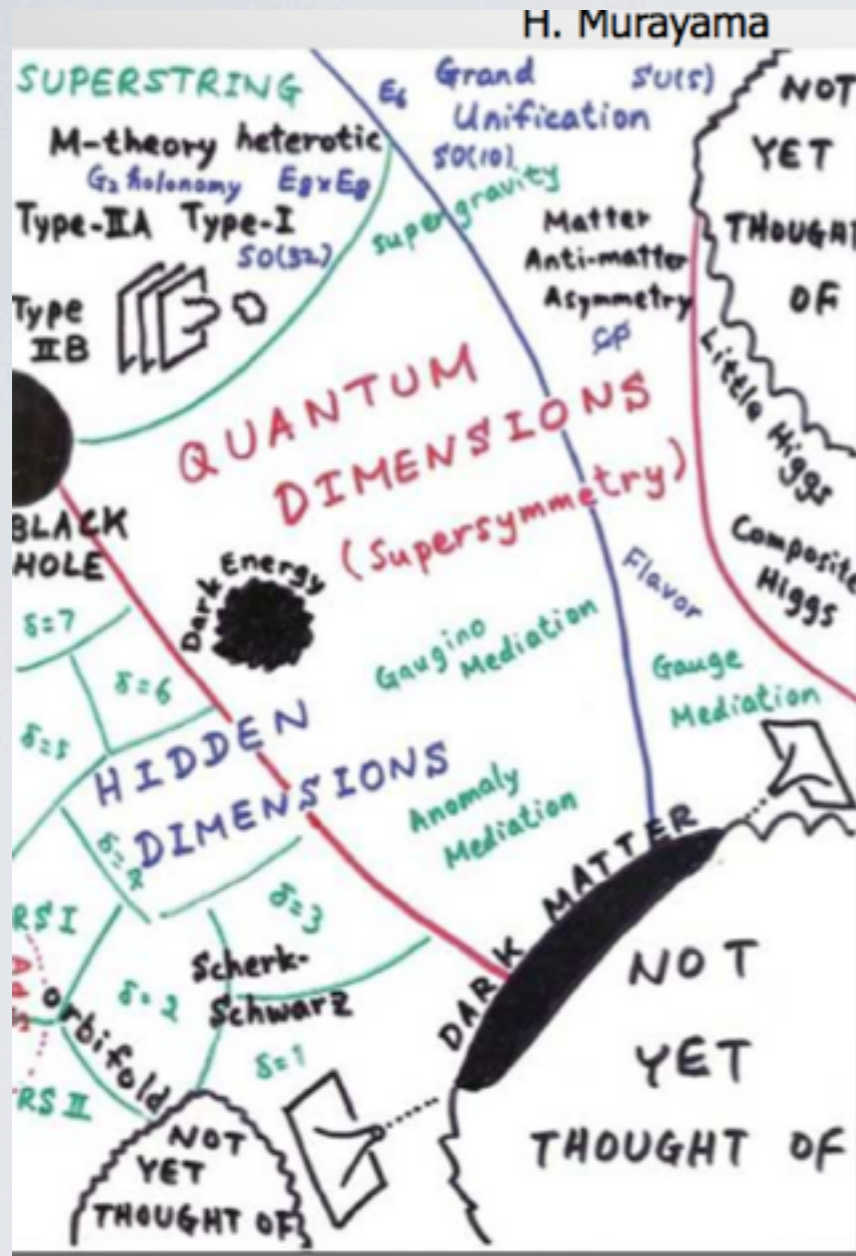 H. Murayama
SUPERSTRING
M-theory heterotic
G₂ holonomy E₈×E₈
Type-IIA Type-I
SO(32)
Type
IIB
E₆
Grand
Unification
SU(5)
SO(10)
supergravity
Matter
Anti-matter
Asymmetry
CP
NOT
YET
THOUGHT
OF
Little Higgs
Composite
Higgs
QUANTUM
DIMENSIONS
(Supersymmetry)
BLACK
HOLE
Dark Energy
Flavor
Gaugino
Mediation
Gauge
Mediation
δ=7
δ=6
δ=5
HIDDEN
DIMENSIONS
Anomaly
Mediation
δ=4
δ=3
DARK MATTER
RS I
AdS
orbifold
δ=2
Scherk-
Schwarz
δ=1
RS II
NOT
YET
THOUGHT OF
NOT
YET
THOUGHT OF